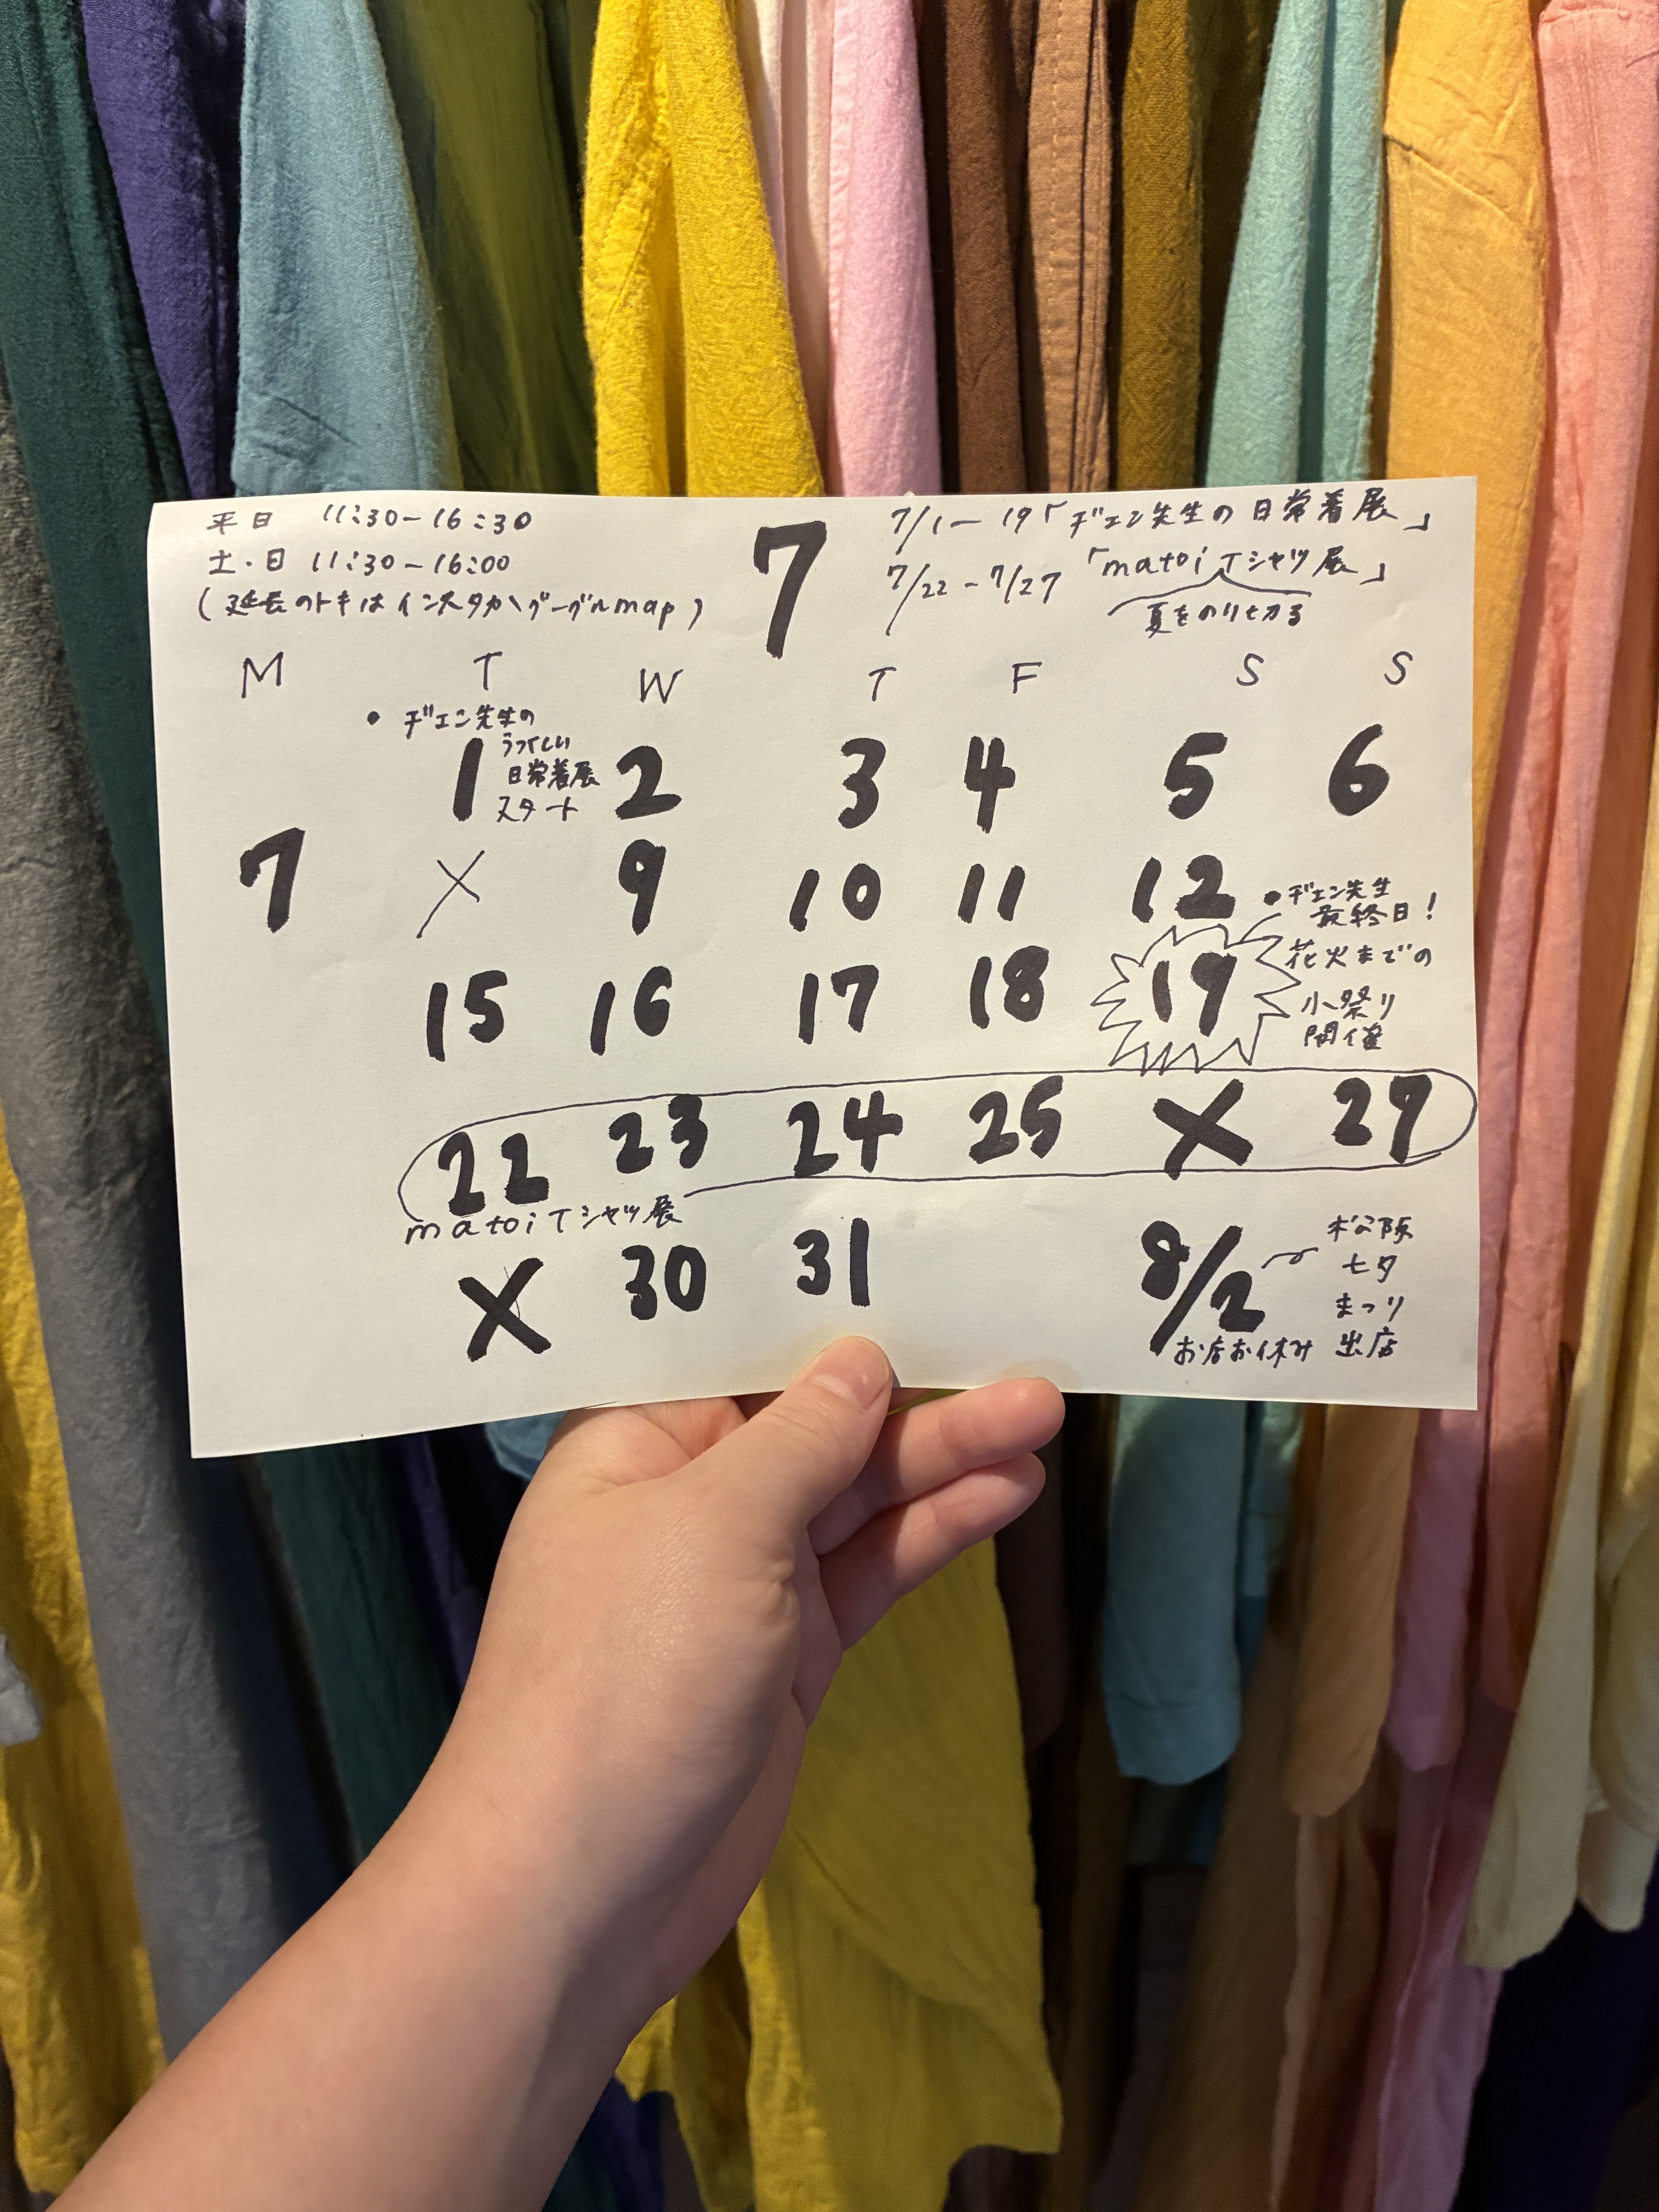 平日 11:30-16:30
土・日 11:30-16:00
(延長のトキはインスタかグーグルmap)
7
7/1-19「ヂェン先生の日常着展」
7/22-7/27「matoi Tシャツ展」
夏をのりきる
M T W T F S S
• ヂェン先生の
うつくしい
日常着展
スタート
1 2 3 4 5 6
7 X 9 10 11 12
• ヂェン先生
最終日!
花火までの
小祭り
開催
15 16 17 18 19
22 23 24 25 X 27
matoi Tシャツ展
X 30 31 8/2
お店お休み
松阪
七夕
まつり
出店